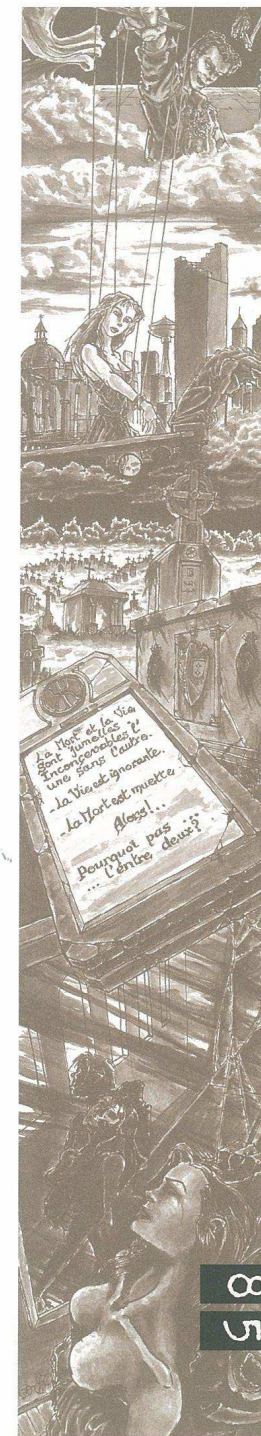 La Mort et la Vie
sont jumelles
Inconcevables l'
une sans l'autre.
La Vie est ignorante.
La Mort est muette
Alors!..
Pourquoi pas ...
... l'entre deux?
8
5